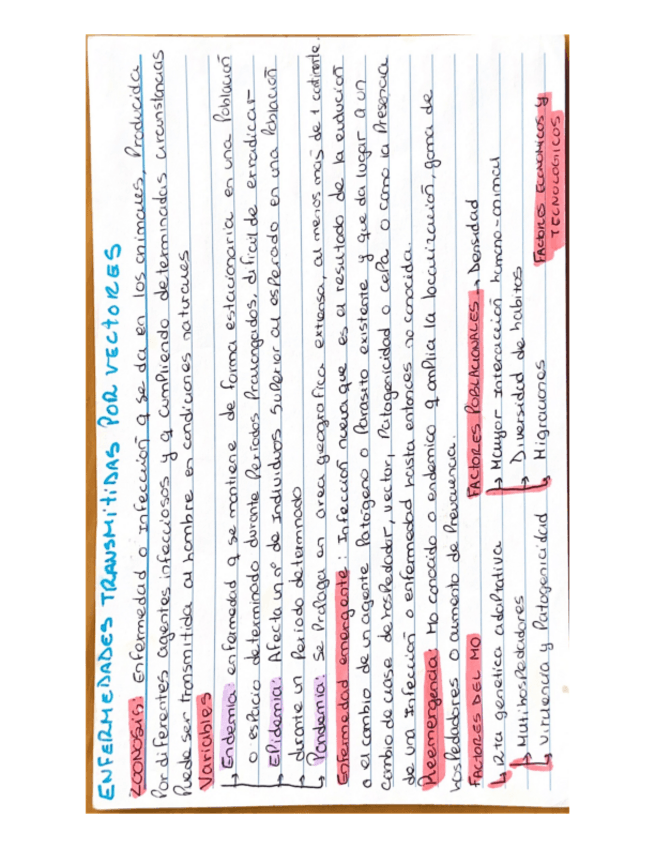 ENFERMEDADES TRANSMITIDAS POR VECTORES
ZOONOSIS: Enfermedad o Infección q se da en los animales, Producida
Por diferentes agentes infecciosos y q cumpliendo determinadas circunstancias
Puede ser transmitida al hombre en condiciones naturales
Variables
↳ Endemia: enfermedad q se mantiene de forma estacionaria en una Población
o espacio determinado durante Periodos Prolongados, dificil de erradicar
↳ EPidemia: Afecta un nº de Individuos superior al esperado en una Población
durante un Periodo determinado
↳ Pandemia: Se Propaga en area geografica extensa, al menos mas de 1 continente.
Enfermedad emergente: Infección nueva que es el resultado de la evolución
o el cambio de un agente Patógeno o Parasito existente y que da lugar a un
cambio de clase de hospedador, vector, Patogenicidad o cepa o como la Presencia
de una Infección o enfermedad hasta entonces no conocida.
Reemergencia: Mo conocido o endemico q amplia la localización, gama de
hospedadores o aumento de Prevalencia.
FACTORES DEL MO
↳ Rta genetica adaptativa
↳ Multihospedadores
↳ Virulencia y Patogenicidad
FACTORES POBLACIONALES → Densidad
↳ Mayor Interacción humano-animal
↳ Diversidad de habitos
↳ Migraciones
FACTORES ECONOMICOS Y
TECNOLOGICOS